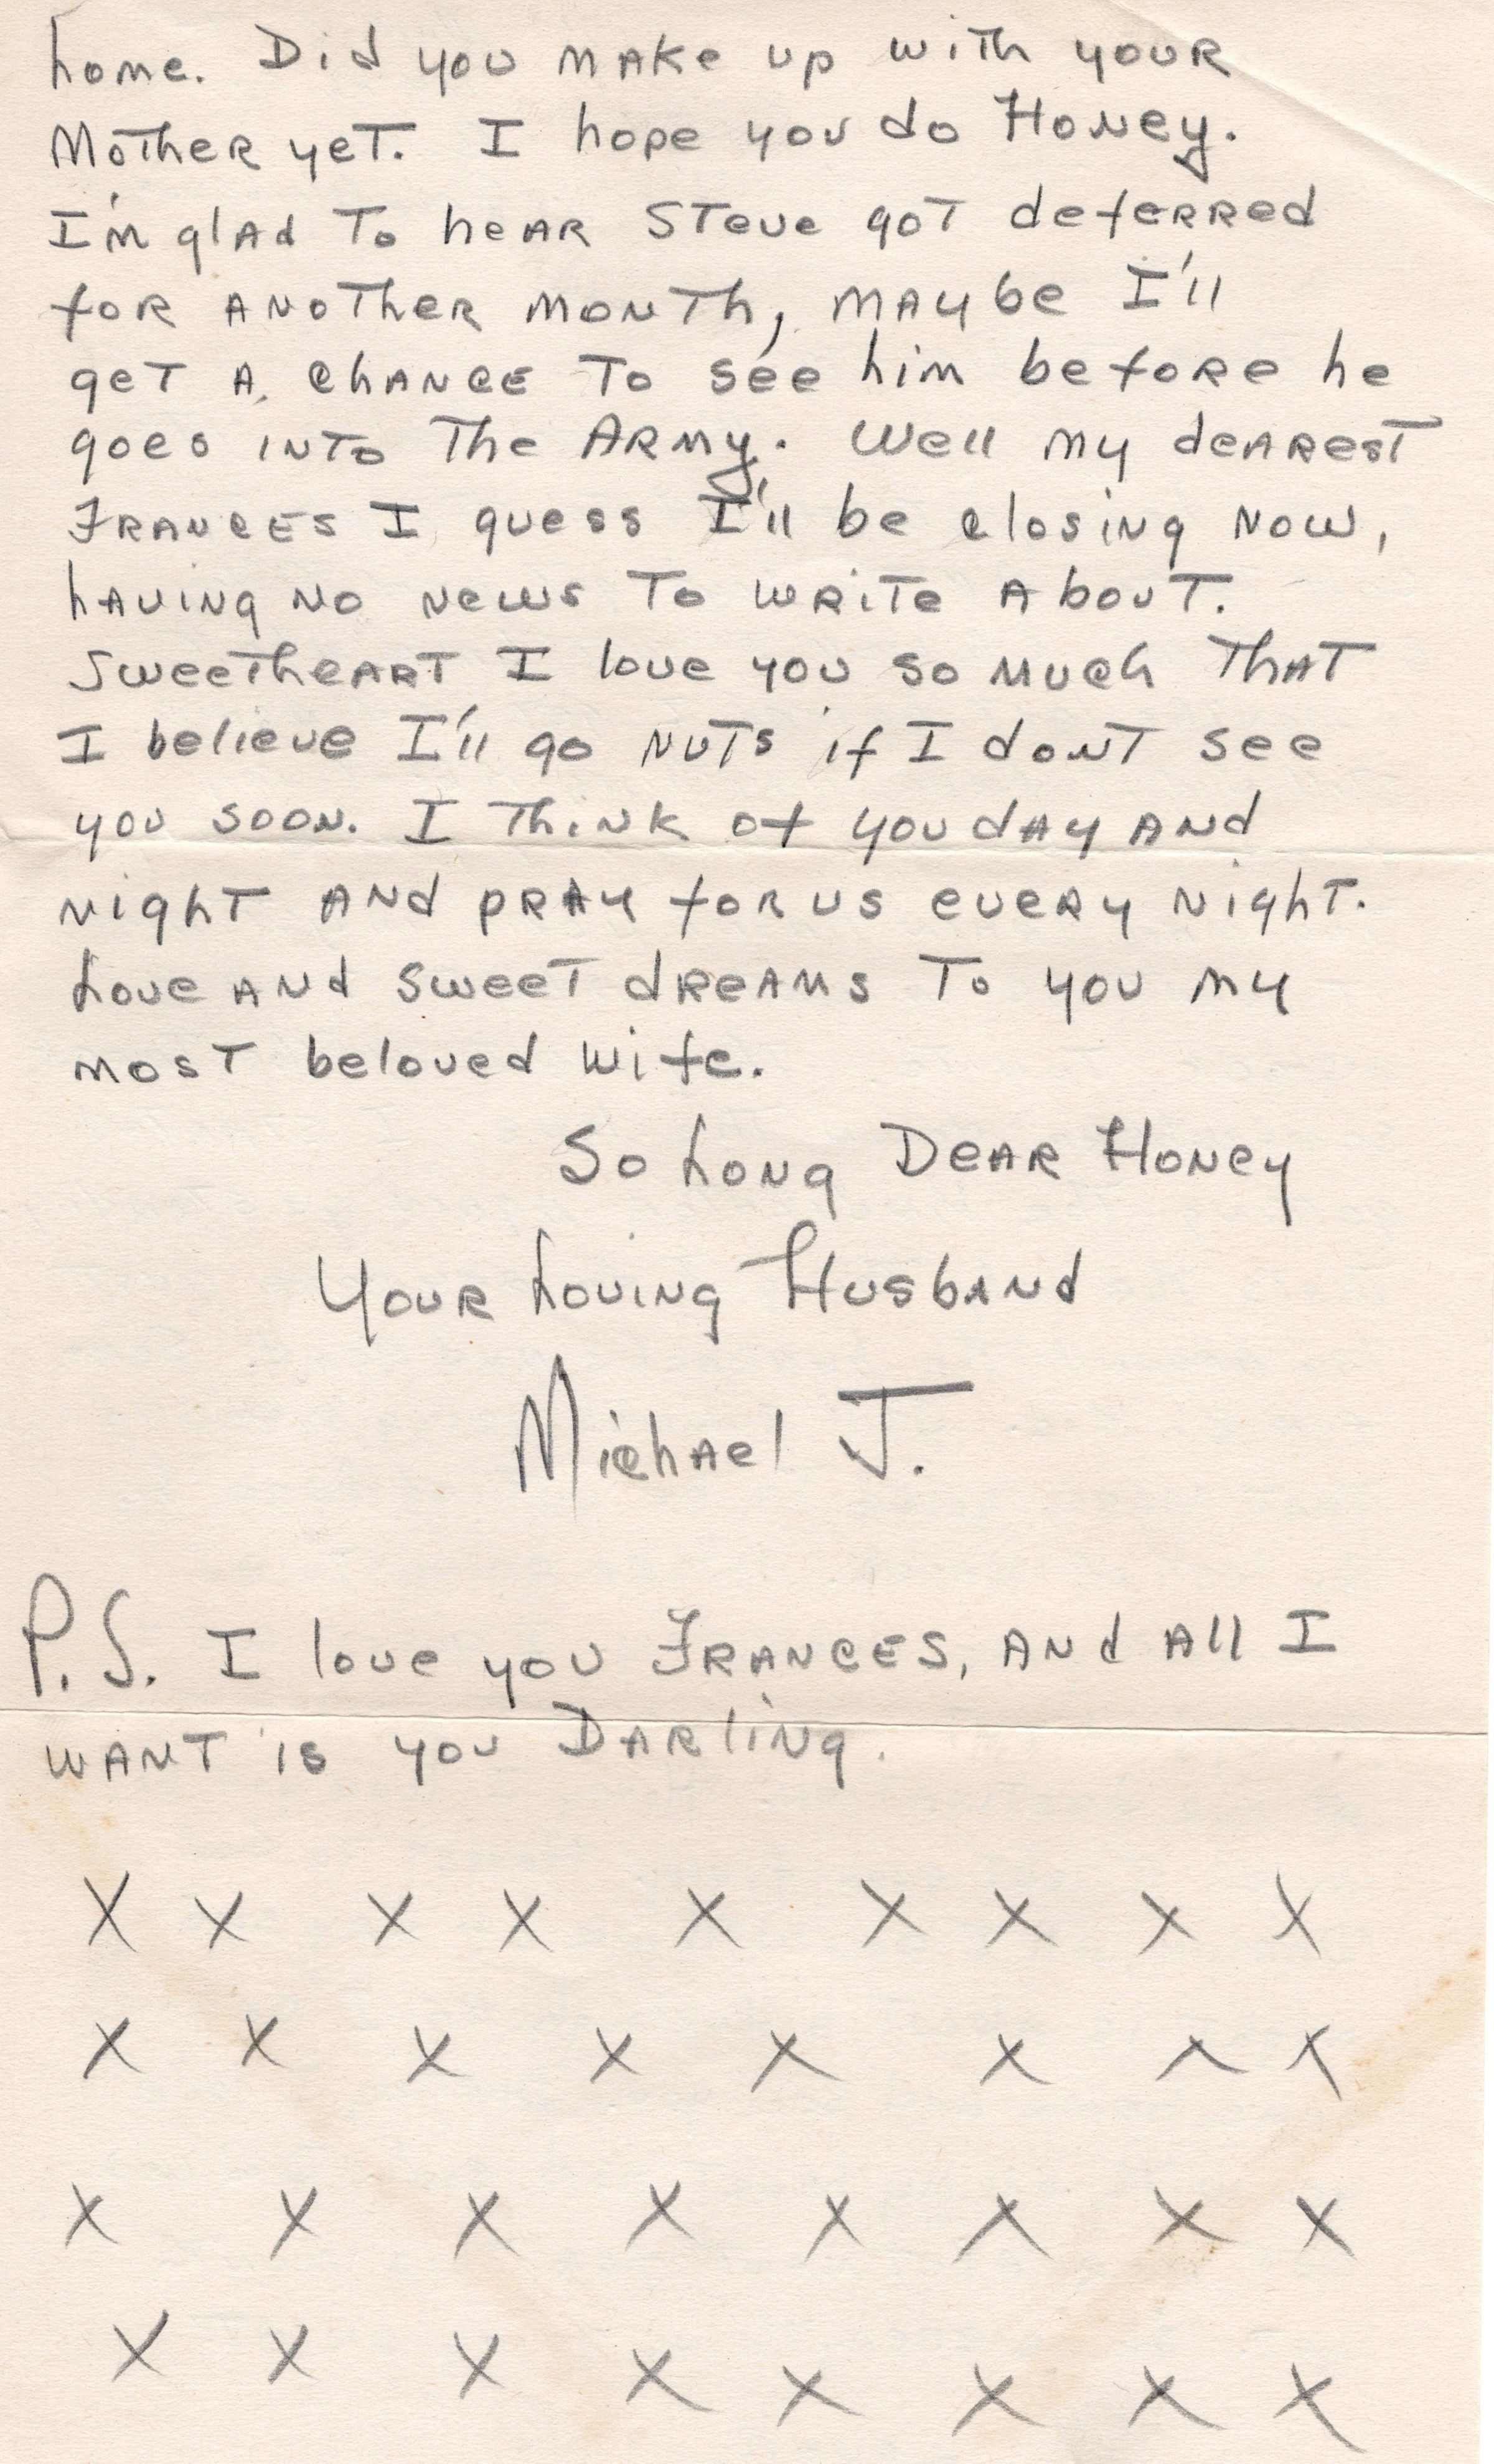 home. Did you make up with your
Mother yet. I hope you do Honey.
I'm glad to hear Steve got deferred
for another month, maybe I'll
get a chance to see him before he
goes into the Army. Well my dearest
Frances I guess I'll be closing now,
having no news to write about.
Sweetheart I love you so much that
I believe I'll go nuts if I dont see
you soon. I think of you day and
night and pray for us every night.
Love and sweet dreams to you my
most beloved wife.
So Long Dear Honey
Your Loving Husband
Michael J.
P.S. I love you Frances, and all I
want is you Darling.
X X X X X X X X X
X X X X X X X X
X X X X X X X X
X X X X X X X X